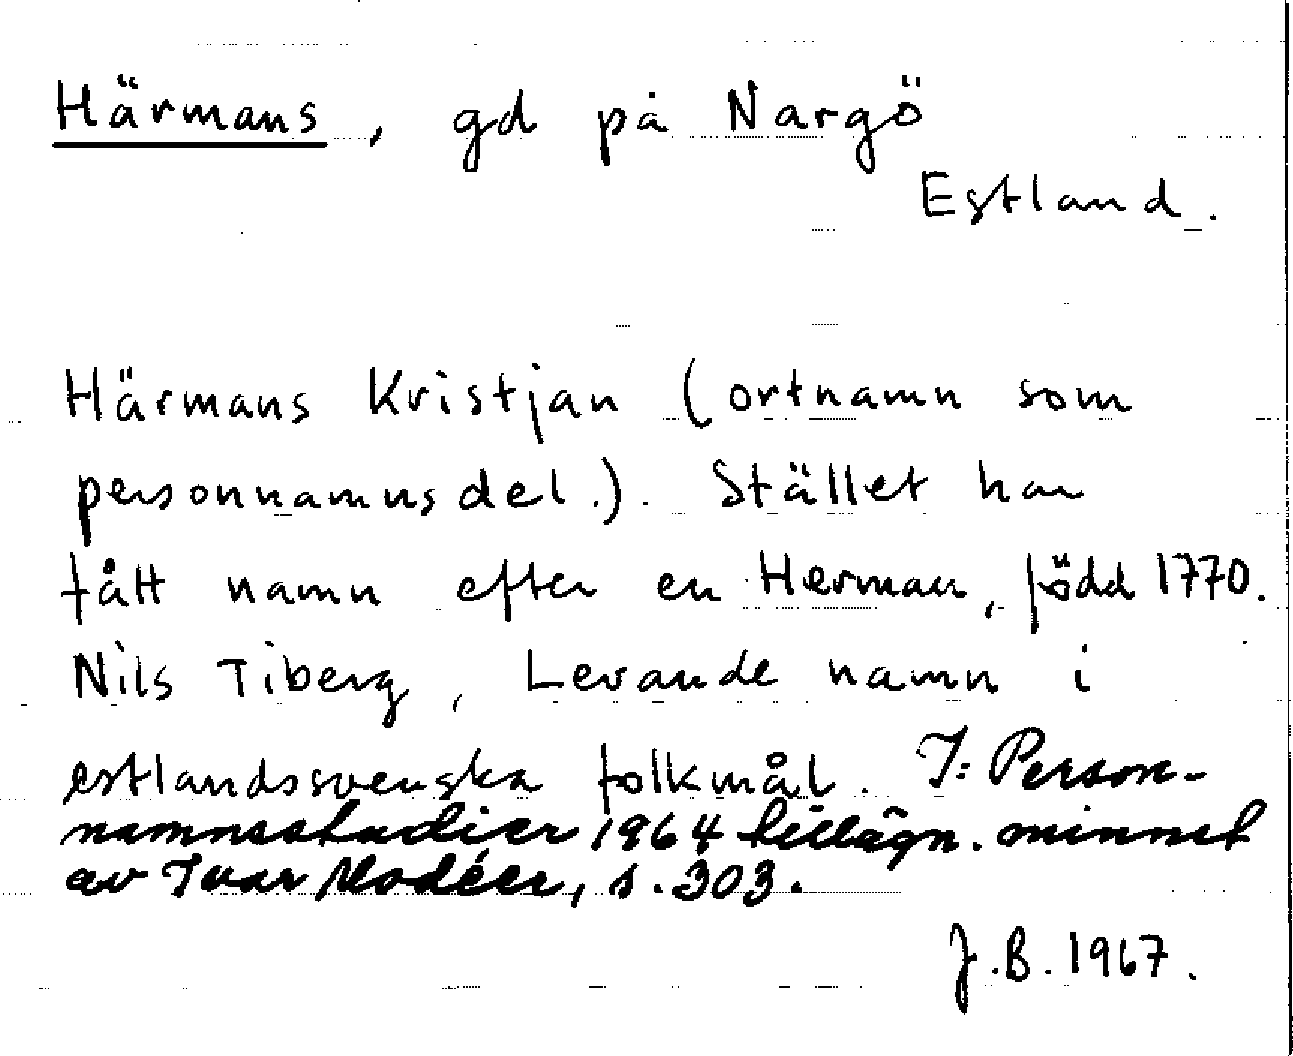 Härmans, gd på Nargö
Estland.
Härmans Kristjan (ortnamn som
personnamnsdel.). Stället har
fått namn efter en Herman, född 1770.
Nils Tiberg, Levande namn i
estlandssvenska folkmål. I: Person-
namnsstudier 1964 tillägn. minnet
av Ivar Modéer, s. 303.
J.B. 1967.